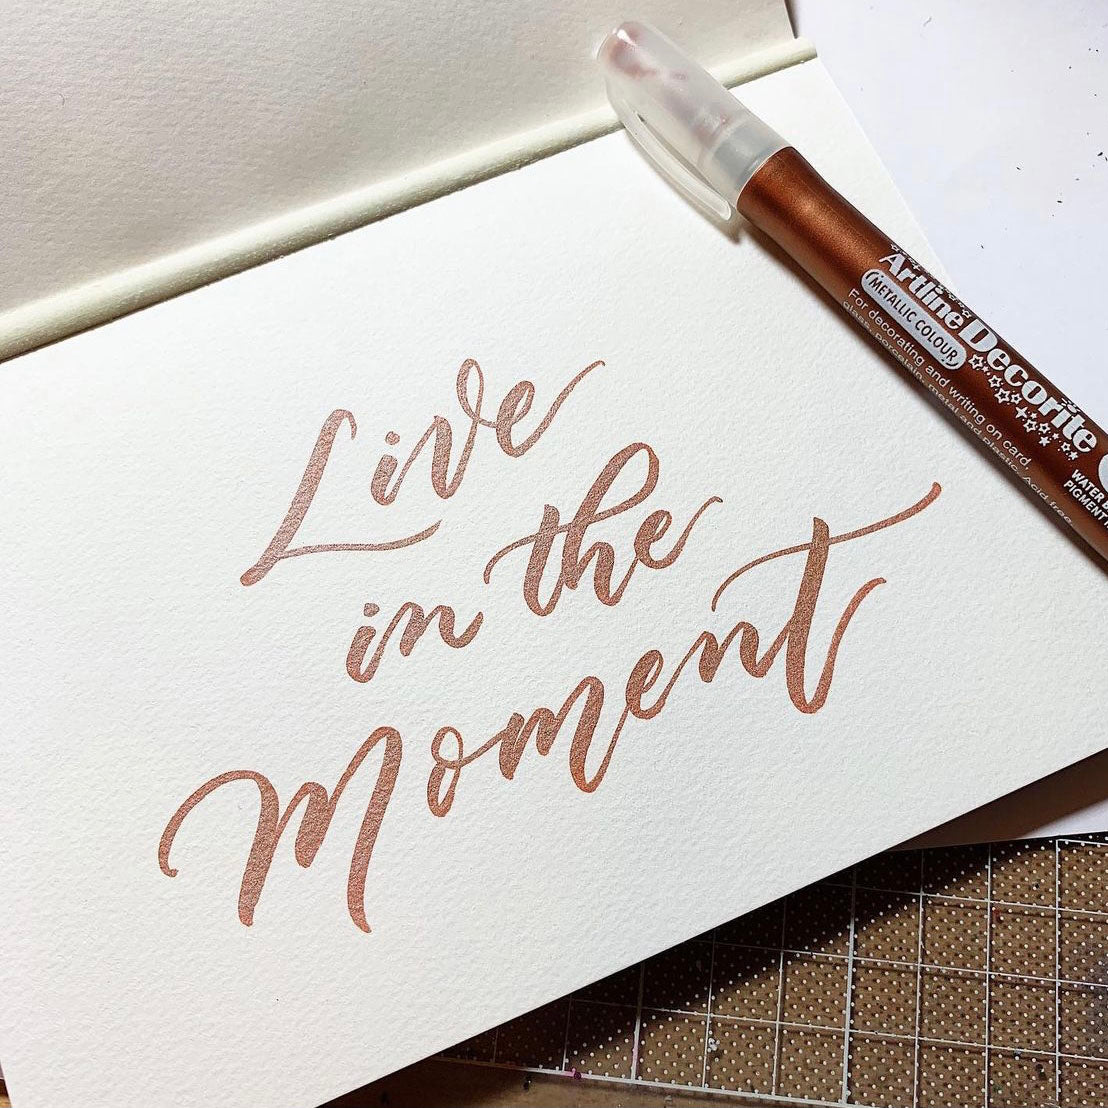 Live
in the
Moment
Artline Decorite
METALLIC COLOUR
For decorating and writing on card,
glass, porcelain, metal and plastic. Acid free
WATER
PIGMENT